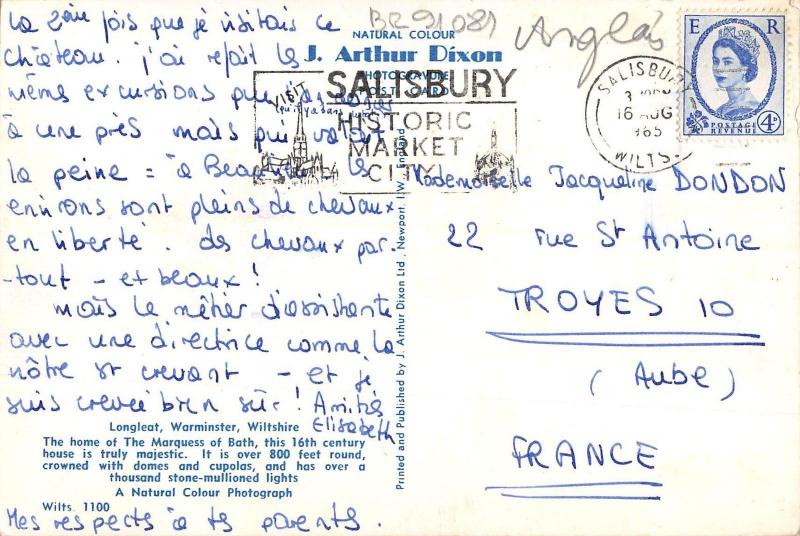 BR91081
Anglais
La 2ème fois que je visitais ce
château. j'ai refait les
mêmes excursions que
à une près mais qui valait
la peine = à
environs sont pleins de chevaux
en liberté. des chevaux par-
-tout - et beaux!
mais le métier d'assistante
avec une directrice comme la
nôtre est crevant - et je
suis crevée bien sûr! Amitiés
Elisabeth
Mes respects à ts parents.
NATURAL COLOUR
J. Arthur Dixon
PHOTOGRAVURE
POST CARD
VISIT
SALISBURY
HISTORIC
MARKET
CITY
SALISBURY
3
16 AUG
1965
WILTS.
E R
POSTAGE
REVENUE
4D
Mademoiselle Jacqueline DONDON
22 rue St Antoine
TROYES 10
(Aube)
FRANCE
Printed and Published by J. Arthur Dixon Ltd., Newport, I.W., England
Longleat, Warminster, Wiltshire
The home of The Marquess of Bath, this 16th century
house is truly majestic. It is over 800 feet round,
crowned with domes and cupolas, and has over a
thousand stone-mullioned lights
A Natural Colour Photograph
Wilts. 1100